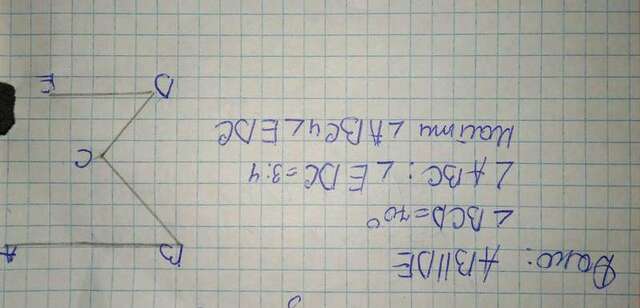 Дано: AB||DE
∠BCD=70°
∠ABC:∠EDC=3:4
Найти ∠ABC и ∠EDC
A
B
C
D
E